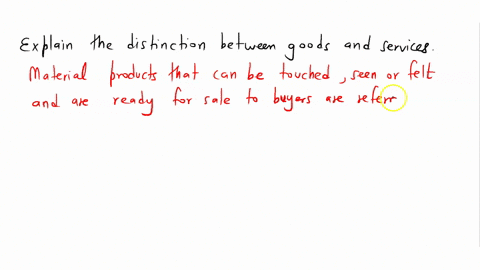 Explain the distinction between goods and services.
Material products that can be touched, seen or felt
and are ready for sale to buyers are referr